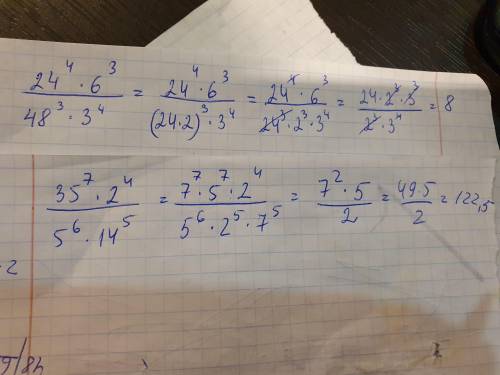 24⁴ · 6³ / 48³ · 3⁴ = 24⁴ · 6³ / (24·2)³ · 3⁴ = 24⁴ · 6³ / 24³ · 2³ · 3⁴ = 24 · 2³ · 3³ / 2³ · 3⁴ = 8
35⁷ · 2⁴ / 5⁶ · 14⁵ = 7⁷ · 5⁷ · 2⁴ / 5⁶ · 2⁵ · 7⁵ = 7² · 5 / 2 = 49·5 / 2 = 122,5
· 2